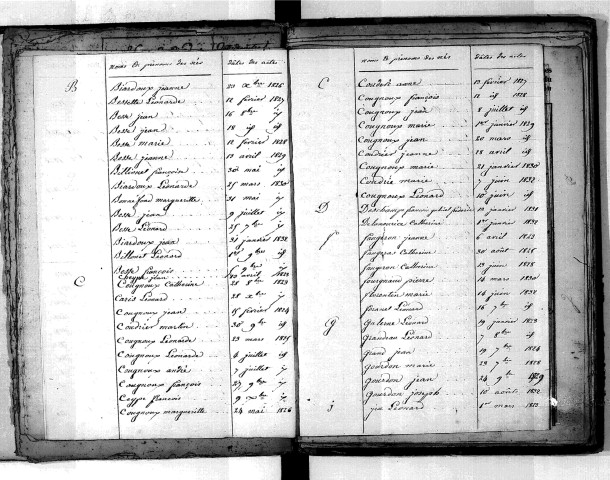 noms et prénoms des nés dates des actes
B
Biardoux jeanne 20 xbre 1826
Bessette Léonarde 12 février 1827
Besse jean 16 8bre id
Besse jean 18 id id
Besse marie 12 février 1828
Besse jeanne 13 avril 1829
Billonet françoise 30 mai id
Biardoux Léonarde 25 mars 1830
Bonnefond marguerite 31 mai id
Besse jean 9 juillet id
Besse Léonard 25 7bre id
Biardoux jean 31 janvier 1832
Billonet Léonard 1er 9bre id
Besse françois 9bre id
Ceyppe jean avril 1823
C
Cougnoux Catherine 28 8bre 1823
Caris Léonard 28 xbre id
Cougnoux jean 15 février 1824
Coudrier martin 30 9bre id
Cougnoux Léonarde 23 mars 1825
Cougnoux Léonarde 4 juillet id
Cougnoux andré 7 juillet id
Cougnoux françois 27 9bre id
Ceyppe françois 9 xbre id
Cougnoux marguerite 24 mai 1826
noms et prénoms des nés dates des actes
C
anne 13 février 1827
Cougnoux françois 12 id 1828
Cougnoux jean 8 juillet id
Cougnoux marie 1er janvier 1829
Cougnoux jean 20 mars id
Coudrier jeanne 28 avril id
Cougnoux marie 21 janvier 1830
Coudrie marie 7 juin 1832
Cougnoux Léonard 10 juin id
D
Deschamps françois 12 janvier 1831
Catherine 1er janvier 1832
f
fangeron jeanne 6 avril 1823
Catherine 30 août 1826
fangeron Catherine 23 juin 1828
fourgnaud pierre 14 mars 1830
florentin marie 14 juin 1832
Léonard 16 7bre id
G
Galerne Léonard 19 janvier 1823
Grandeau Léonard 7 8bre id
Grand jean 19 7bre 1824
Gourdon marie 28 7bre 1828
Gourdon jean 24 9bre 1829
Gourdon joseph 10 août 1832
j
Léonard 1er mars 1823